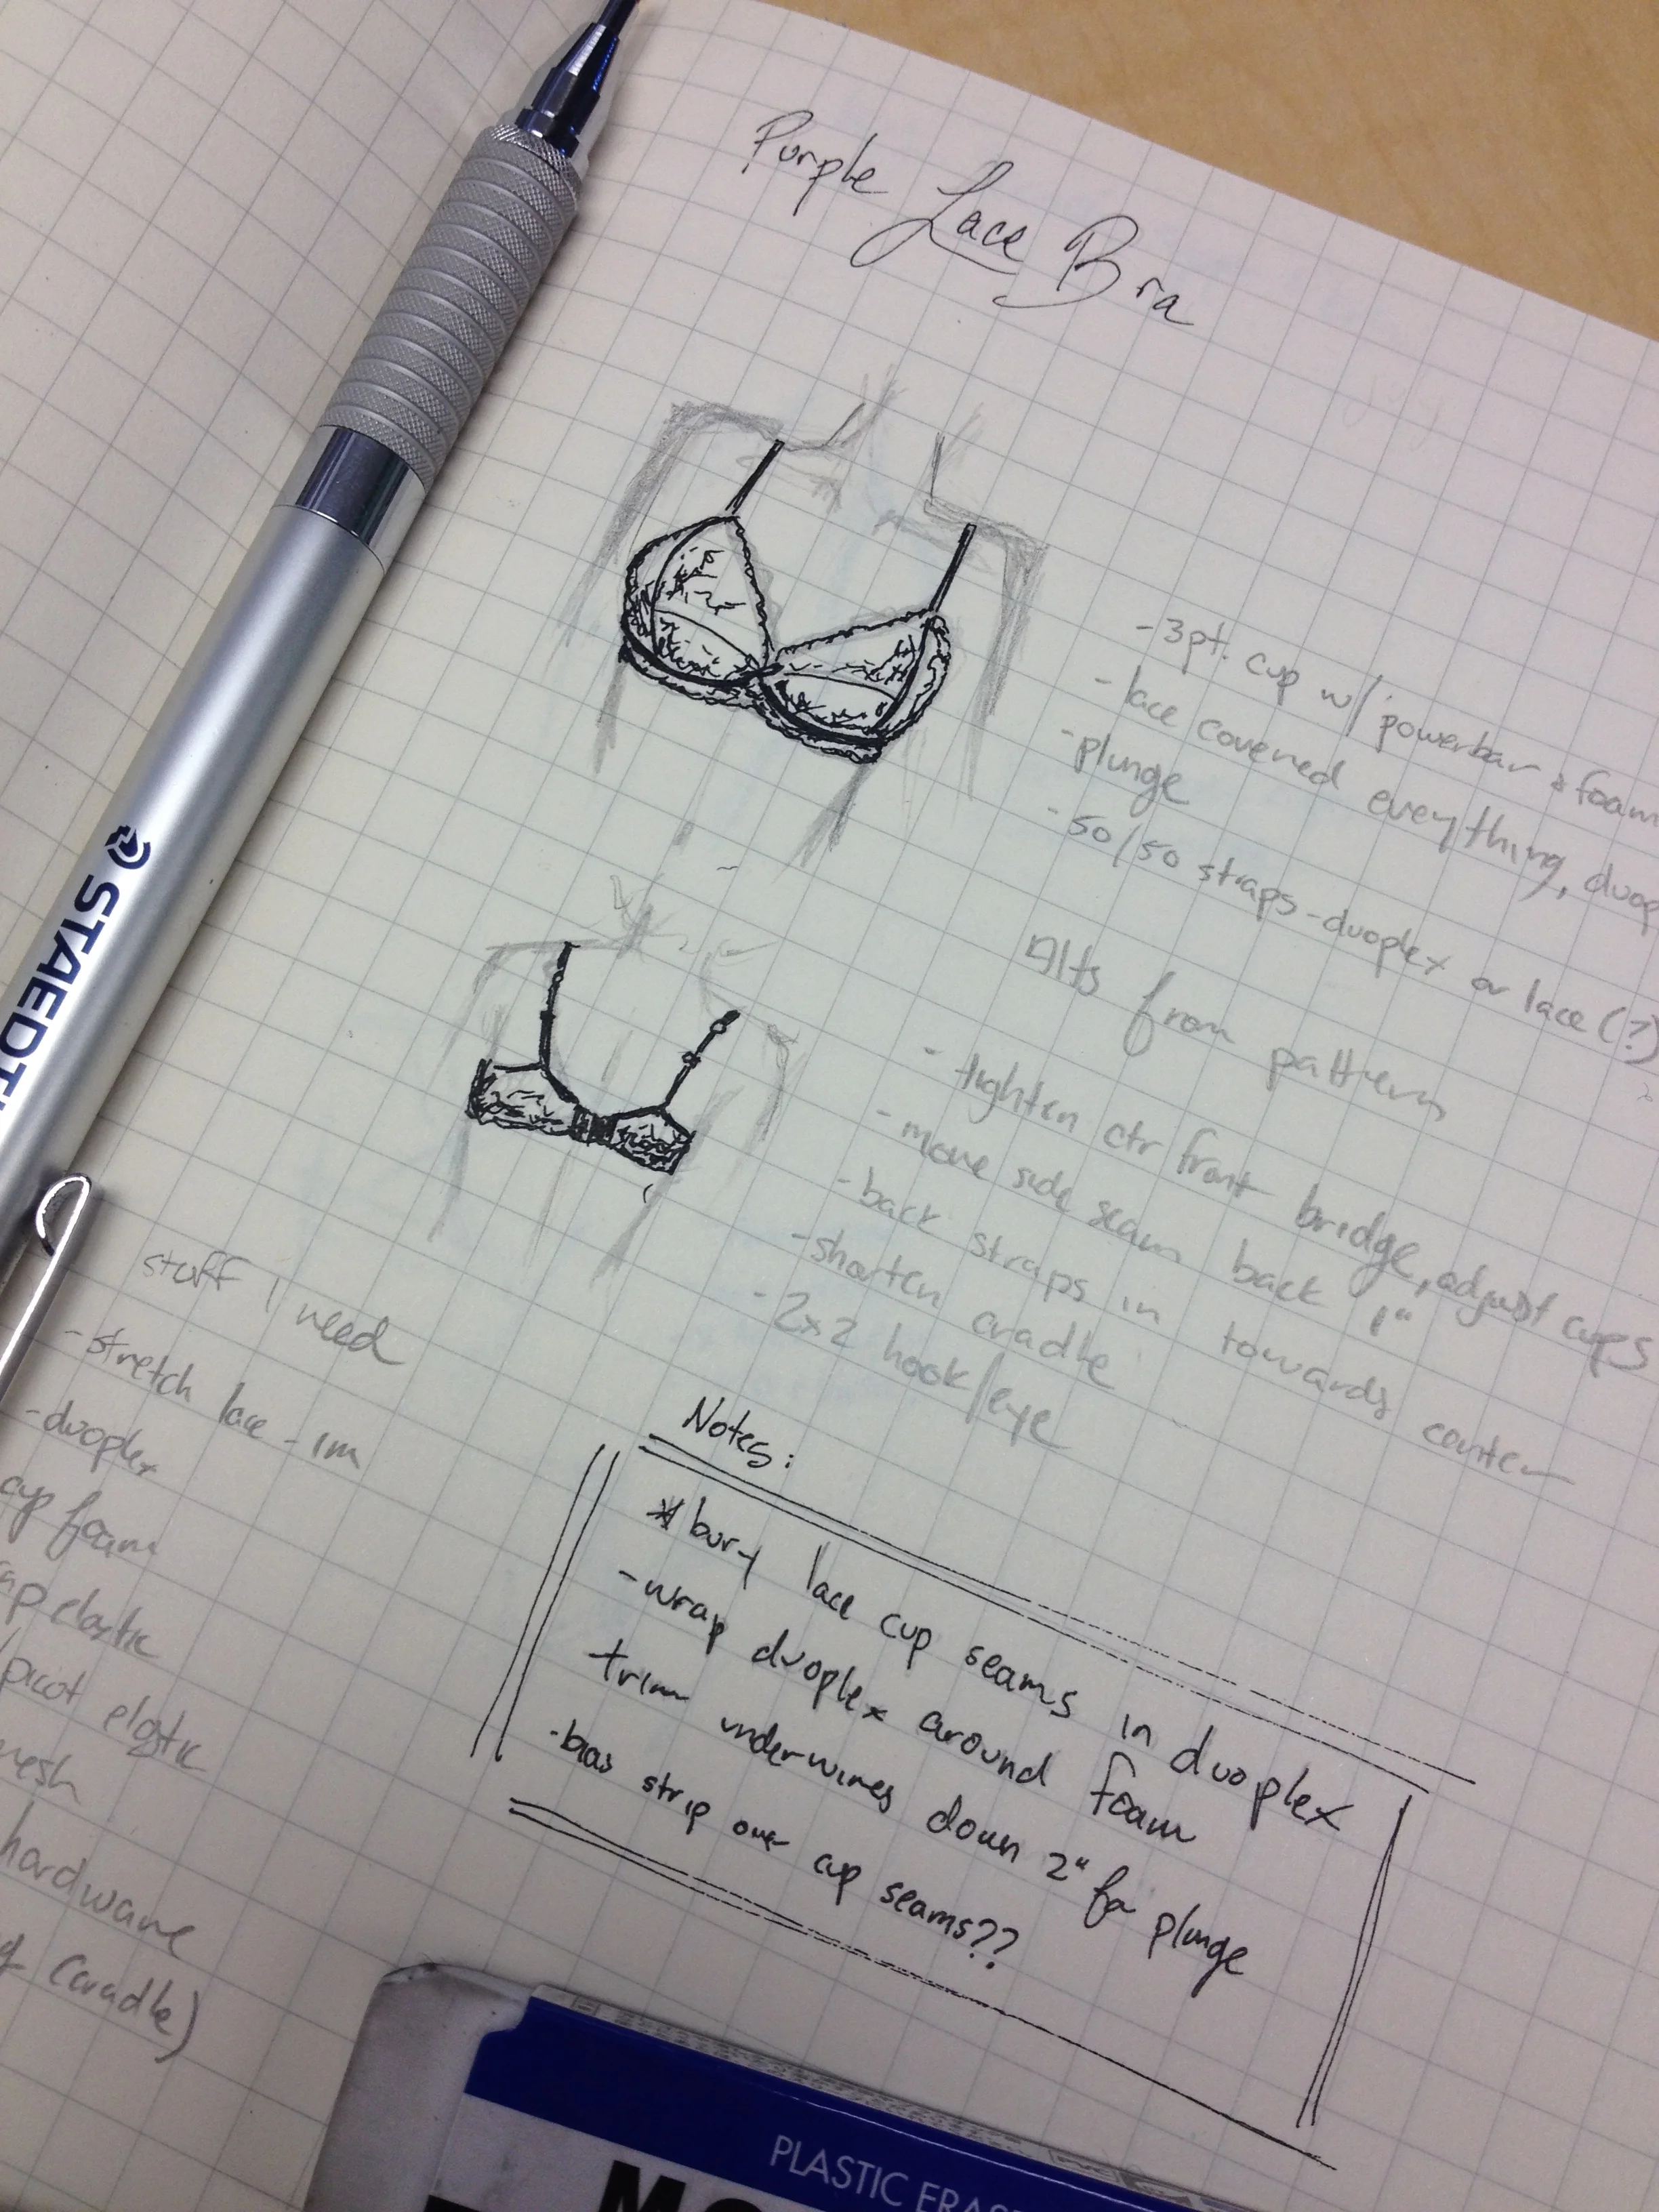 Purple Lace Bra
-3pt. cup w/ powerbar & foam
-lace covered everything, duop
-plunge
-50/50 straps-duoplex or lace(?)
Alts from pattern
-tighten ctr front bridge, adjust cups
-move side seam back 1"
-back straps in towards center
-shorten cradle
-2x2 hook/eye
stuff I need
-stretch lace - 1m
-duoplex
cup foam
ap elastic
picot elastic
mesh
hardware
(cradle)
Notes:
*bury lace cup seams in duoplex
-wrap duoplex around foam
trim underwires down 2" for plunge
-bias strip over cup seams??
STAEDT
PLASTIC ERAS
MO